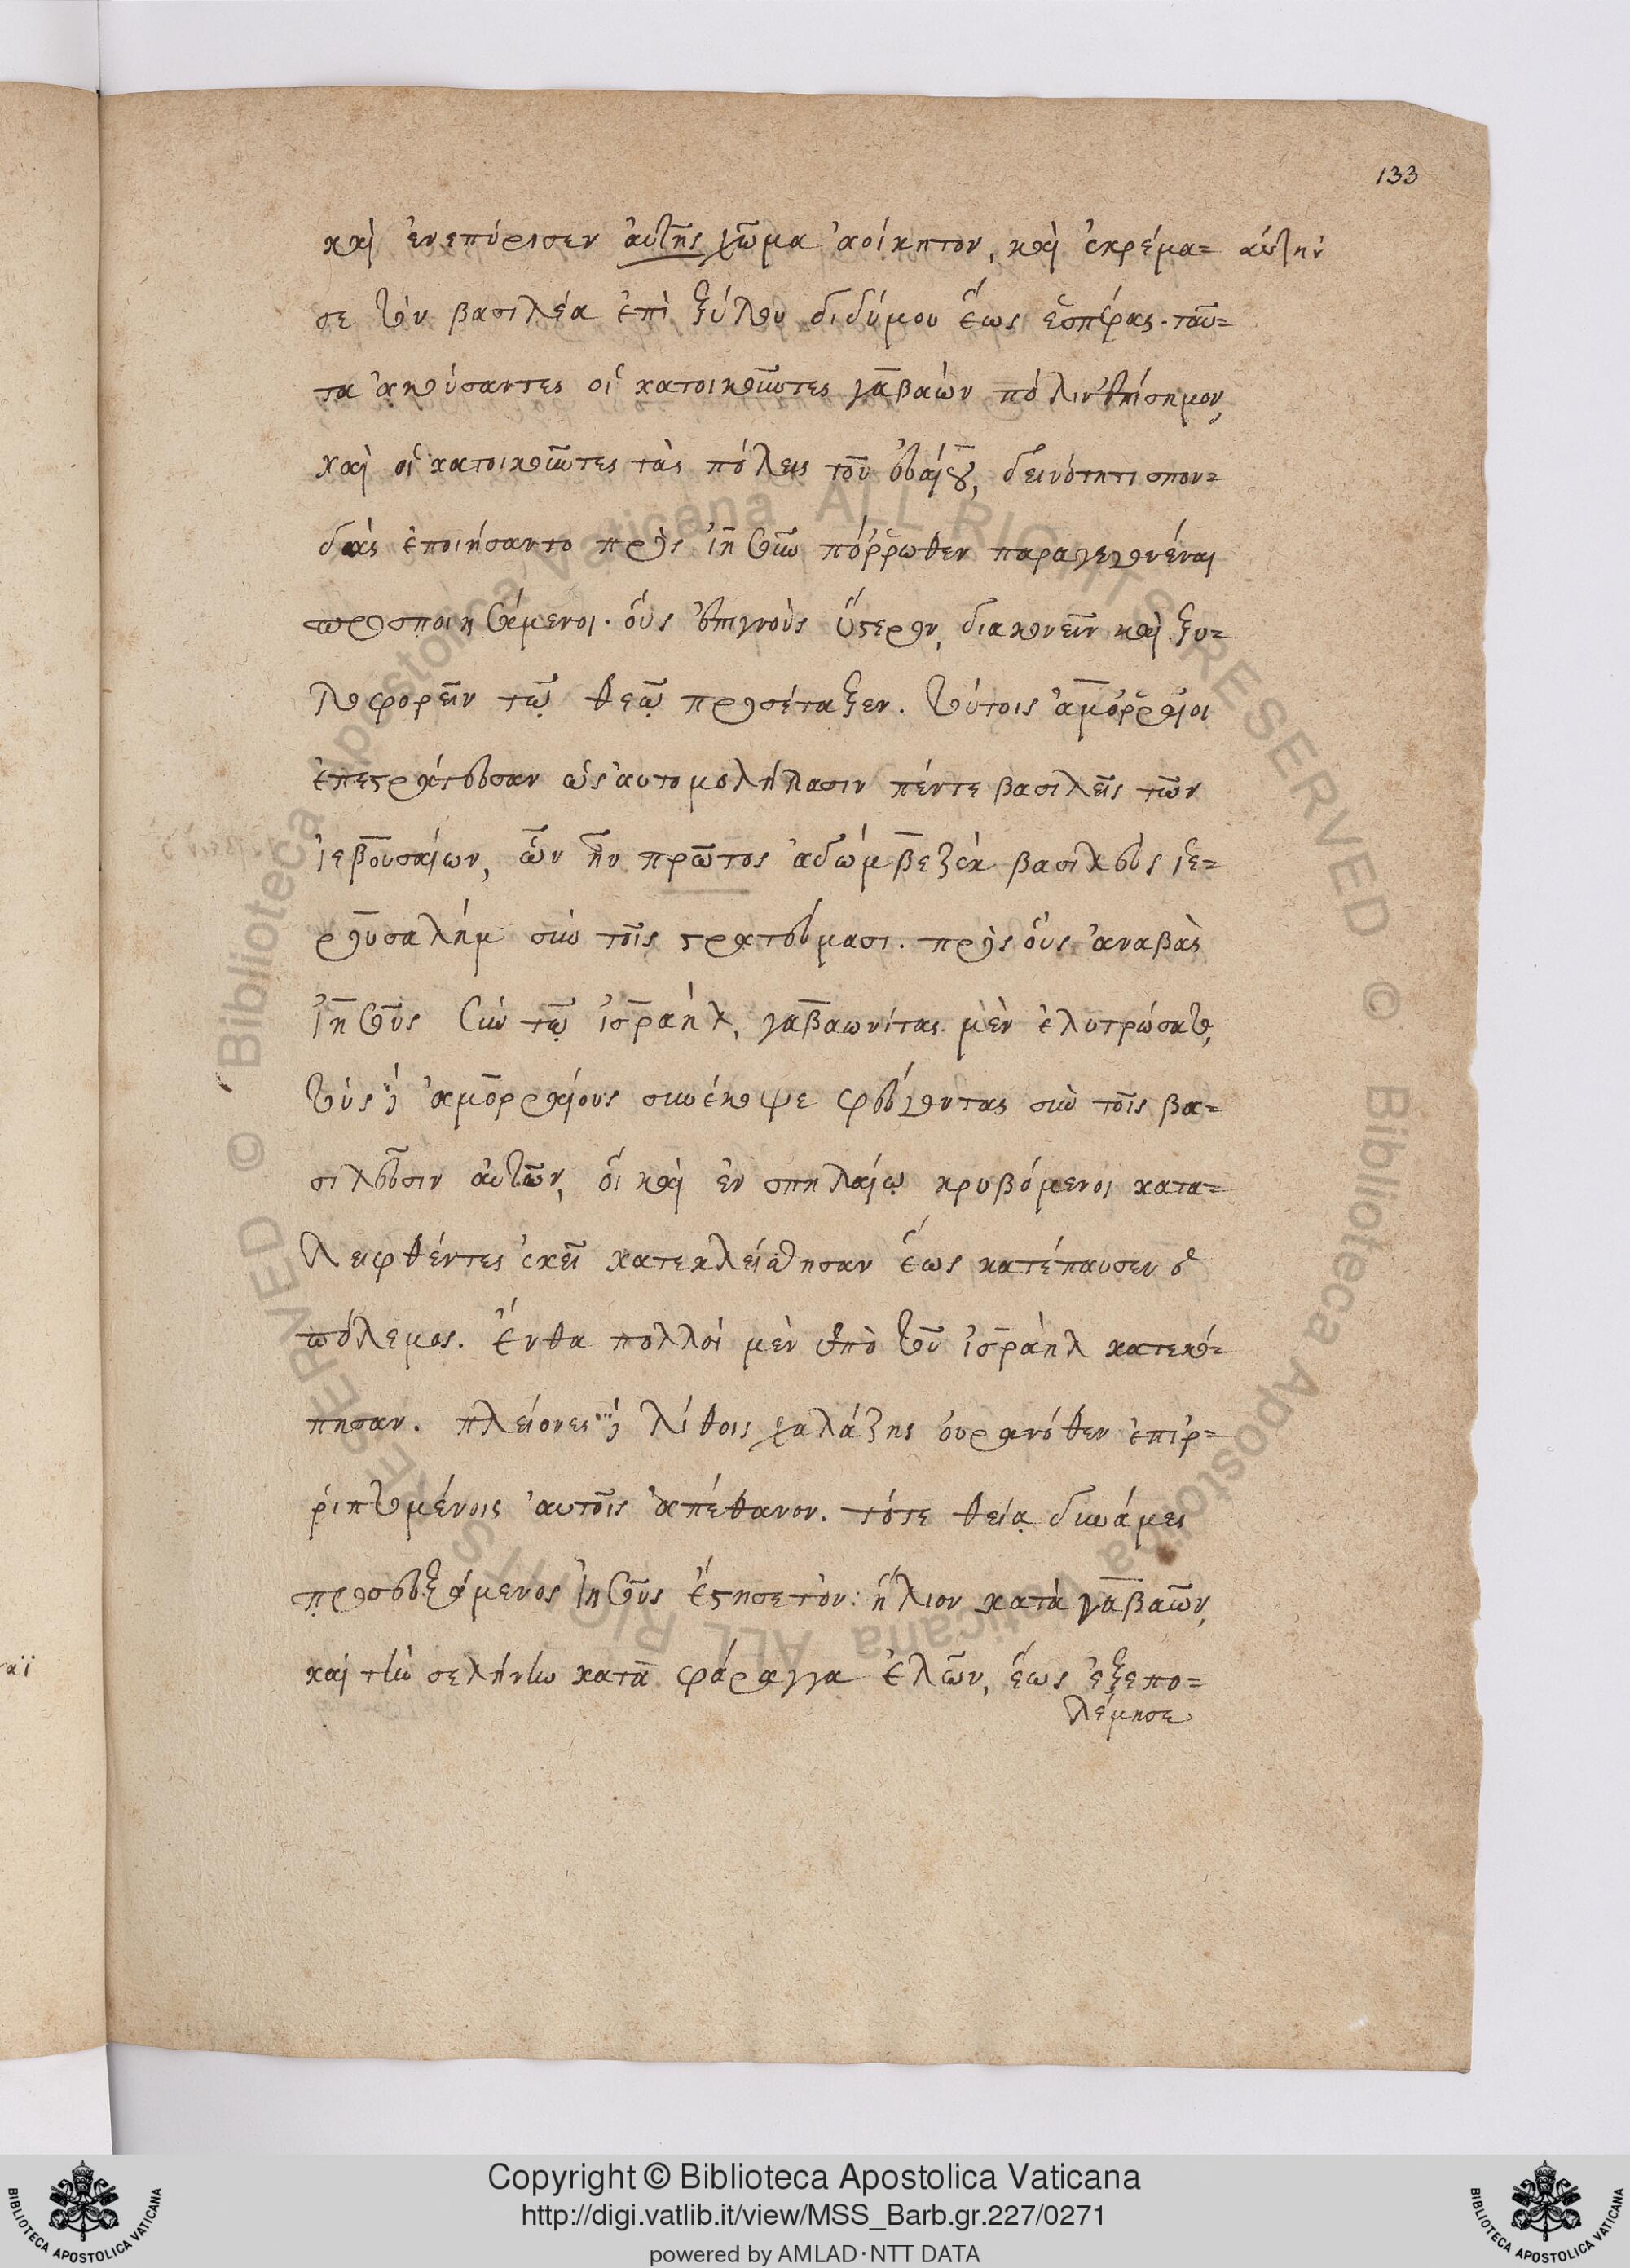 133
καὶ ἐνεπύρισεν αὐτῆς χῶμα ἀοίκητον, καὶ ἐκρέμα= αὐτὴν
σε τὸν βασιλέα ἐπὶ ξύλου διδύμου ἕως ἑσπέρας. ταῦ=
τα ἀκούσαντες οἱ κατοικοῦντες γαβαὼν πόλιν ἐπίσημον,
καὶ οἱ κατοικοῦντες τὰς πόλεις τοῦ εὐαίου, δεινότητι σπον=
δὰς ἐποιήσαντο πρὸς ἰησοῦν πόῤῥωθεν παραγεγονέναι
προσποιησάμενοι. οὓς ἐπιγνοὺς ὕστερον, διακονεῖν καὶ ξυ=
λοφορεῖν τῷ θεῷ προσέταξεν. τούτοις ἀμοῤῥαῖοι
ἐπεστράτευσαν ὡς αὐτομολήσασιν πέντε βασιλεῖς τῶν
ἰεβουσαίων, ὧν ἦν πρῶτος ἀδώμβεζὲκ βασιλεὺς ἱε=
ρουσαλήμ σὺν τοῖς στρατεύμασι. πρὸς οὓς ἀναβὰς
ἰησοῦς σὺν τῷ ἰσραὴλ, γαβαωνίτας μὲν ἐλυτρώσατο,
τοὺς δὲ ἀμορραίους συνέκοψε φεύγοντας σὺν τοῖς βα=
σιλεῦσιν αὐτῶν, οἳ καὶ ἐν σπηλαίῳ κρυβόμενοι κατα=
λειφθέντες ἐκεῖ κατεκλείσθησαν ἕως κατέπαυσεν ὁ
πόλεμος. ἔνθα πολλοὶ μὲν ὑπὸ τοῦ ἰσραὴλ κατεκό=
πησαν. πλείονες δὲ λίθοις χαλάζης οὐρανόθεν ἐπιρ=
ῥιπτομένοις αὐτοῖς ἀπέθανον. τότε θείᾳ δυνάμει
προσευξάμενος ἰησοῦς ἔστησε τὸν ἥλιον κατὰ γαβαῶν,
καὶ τὴν σελήνην κατὰ φάραγγα ἐλῶν, ἕως ἐξεπο=
λέμησε
αϊ
Copyright © Biblioteca Apostolica Vaticana
http://digi.vatlib.it/view/MSS_Barb.gr.227/0271
powered by AMLAD·NTT DATA
© Biblioteca Apostolica Vaticana ALL RIGHTS RESERVED
© Biblioteca Apostolica Vaticana ALL RIGHTS RESERVED
BIBLIOTECA APOSTOLICA VATICANA
BIBLIOTECA APOSTOLICA VATICANA